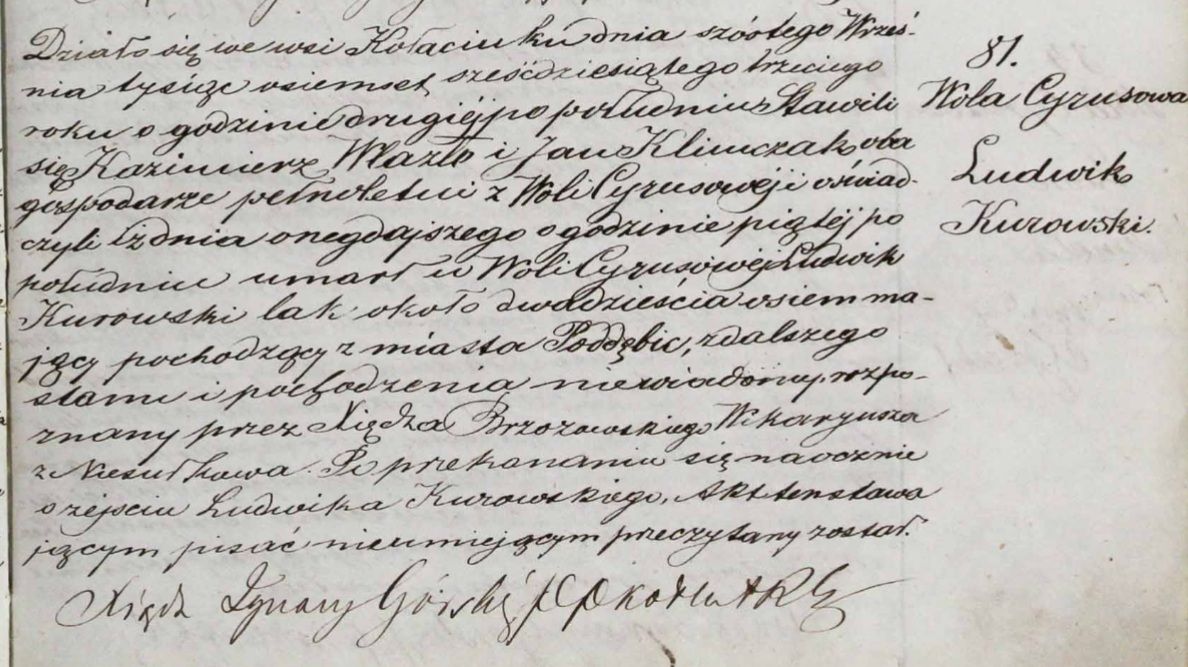 Działo się we wsi Kołaciu ku dnia szóstego Wrześ-
nia tysiąc osiemset sześćdziesiątego trzeciego
roku o godzinie drugiéj po południu Stawili
się Kazimierz Wlazło i Jan Klimczak oba
gospodarze pełnoletni z Woli Cyrusowéj i oświad-
czyli iż dnia onegdajszego o godzinie piątéj po
południu umarł w Woli Cyrusowéj Ludwik
Kurowski lat około dwadzieścia osiem ma-
jący pochodzący z miasta Poddębic, z dalszego
stanu i pochodzenia niewiadomy. rozpo-
znany przez Xiędza Brzozowskiego Wikaryusza
z Niesułkowa. Po przekonaniu się naocznie
o zejściu Ludwika Kurowskiego, Akt ten stawa
jącym pisać nieumiejącym przeczytany został.
Xiądz Ignacy Górski
81.
Wola Cyrusowa
Ludwik
Kurowski.